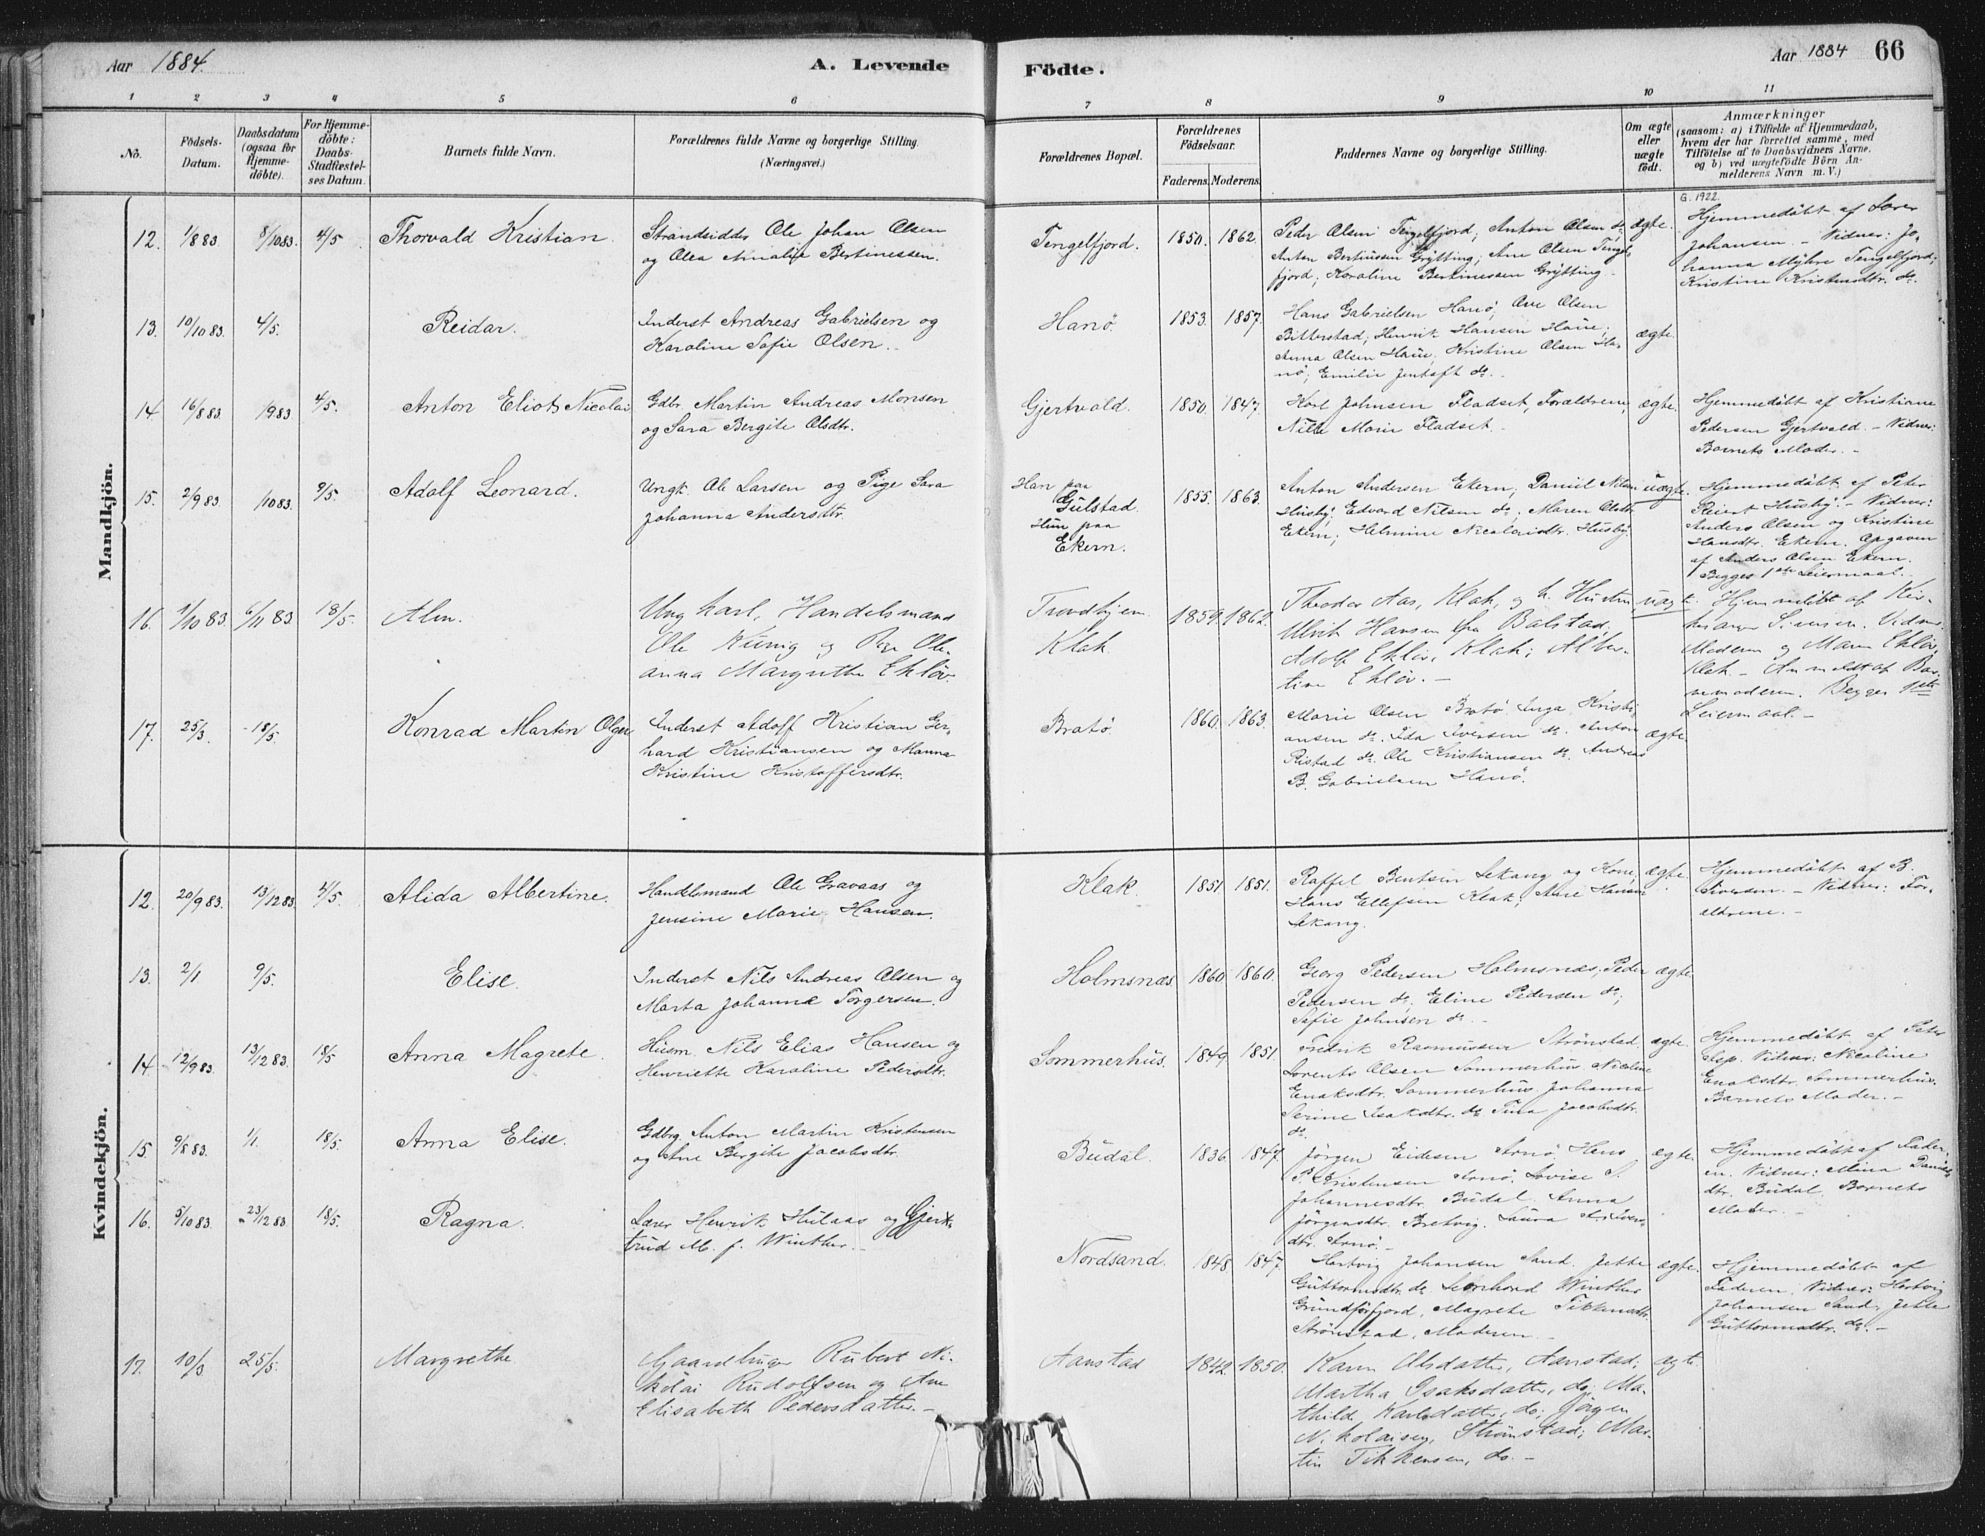 Aar 1884.
A. Levende
Födte.
Aar 1884
66
1 2 3 4 5 6 7 8 9 10 11
No.
Födsels-
Datum.
Daabsdatum
(ogsaa for
Hjemme-
döbte).
For Hjemme-
döbte:
Daabs-
Stadfæstel-
ses Datum.
Barnets fulde Navn.
Forældrenes fulde Navne og borgerlige Stilling.
(Næringsvei.)
Forældrenes Bopæl.
Forældrenes
Födselsaar.
Faderens. Moderens.
Faddernes Navne og borgerlige Stilling.
Om ægte
eller
uægte
födt.
Anmærkninger
(saasom: a) i Tilfælde af Hjemmedaab,
hvem der har forrettet samme, med
Tilföielse af to Daabsvidners Navne,
og b) ved uægtefödte Börn An-
melderens Navn m. V.)
Mandkjön.
12. 1/8 83 8/10 83. 4/5 Thorvald Kristian.
Strandsidder Ole Johan Olsen
og Olea Amalie Bertinessen.
Tengelfjord. 1850. 1862.
Peder Olsen Tengelfjord; Anton Olsen do;
Anton Bertinssen Grytting; Ane Olsen Tengel-
fjord; Karoline Bertinessen Grytting.
ægte.
G. 1922.
Hjemmedöbt af Lærer
Johansen. - Vidner: Jo-
hanna Myhre Tengelfjord;
Kristine Kristensdtr. do.
13. 10/10 83. 4/5. Reidar.
Inderst Andreas Gabrielsen og
Karoline Sofie Olsen.
Hanö. 1853. 1857.
Hans Gabrielsen Hanö, Ove Olsen
Bitterstad; Henrik Hansen
Anna Olsen Kristine Olsen Ha-
nö; Emilie Jentoft do.
ægte.
14 16/8 83 1983 4/5. Anton Eliot Nicolai
Gdbr. Martin Andreas Monsen
og Sara Bergite Olsdtr.
Gjertvald. 1850. 1847.
Karl Johnsen Fladset, Forældrene,
Nille Marie Fladset.
ægte.
Hjemmedöbt af Kristiane
Pedersen Gjertvald. - Vidner:
Barnets Moder. -
15. 2/9 83 /10 83. 9/5 Adolf Leonard.
Ungk. Ole Larsen og Pige Sara
Johanna Andersdtr.
Han paa
Gulstad.
Hun paa
Ekern.
1855. 1863.
Anton Andersen Ekern; Daniel Nilsen
Husby; Edvard Nilsen do; Maren Olsdtr.
Ekern; Helmine Nicolaidtr. Husby.
uægte.
Hjemmedöbt af Peter
Reiert Husby. - Vidner:
Anders Olsen og Kristine
Hansdtr. Ekern. Opgaven
af Anders Olsen Ekern.
Begges 1ste Leiermaal.
16. 9/10 83. 6/11 83. 18/5. Alm.
Ungkarl, Handelsmand
Ole og Pige Ole-
anna Margrethe Ekløv.
Trondhjem
Klak.
1859. 1862.
Theodor Aas, Klak, og h. Hustru,
Ulrik Hansen fra Balstad,
Adolf Ekløv, Klak; Alber-
tine Ekløv. -
uægte.
Hjemmedöbt af
Sivertsen. Vidner
Moderen og Maren Ekløv,
Klak - Anmeldt af Bar-
nemoderen. Begges 1ste
Leiermaal. -
17. 25/3. 18/5. Konrad Martin Olger
Inderst Adolf Kristian Ger-
hard Kristiansen og Manna
Kristine Kristoffersdtr.
Bratö. 1860. 1863.
Marie Olsen Bratö. Inga Kristi-
ansen do. Ida Iversen do. Anton
Ristad do. Ole Kristiansen do. Andreas
B. Gabrielsen Hanö.
ægte.
Kvindekjön.
12. 20/9 83. 13/12 83. 4/5. Alida Albertine.
Handlsmand Ole Gravaas og
Jensine Marie Hansen.
Klak. 1851. 1851.
Raffel Bentsen Sekang og Kone,
Hans Ellefsen Klak; Aase Hansen
Sekang.
ægte.
Hjemmedöbt af B.
Siversen. - Vidner: For-
ældrene. -
13. 2/1 9/5. Elise.
Inderst Nils Andreas Olsen og
Marta Johanne Torgersen.
Holmsnæs. 1860. 1860.
Georg Pedersen Holmsnæs, Peder
Pedersen do; Eline Pedersen do;
Sofie Johnsen do. -
ægte
14. 12/9 83. 13/12 83. 18/5 Anna Magrete.
Husm. Nils Elias Hansen og
Henriette Karoline Pedersdtr.
Sommerhus. 1849. 1851.
Fredrik Rasmussen Strönstad
Lorents Olsen Sommerhus. Nicoline
Enoksdtr. Sommerhus, Johanna
Serine Isaksdtr. do Tina Jacobsdtr.
do.
ægte.
Hjemmedöbt af Peter
Esp. Vidner: Nicoline
Enoksdtr. Sommerhus.
Barnets Moder. -
15 9/8 83. 1/1. 18/5. Anna Elise.
Gdbrg. Anton Martin Kristensen
og Ane Bergite Jacobsdtr.
Budal. 1836. 1847.
Jörgen Eidesen Arnö, Hans
P. Kristensen Arnö. Lovise S.
Johannesdtr. Budal. Anna
Jörgensdtr. Bretvig. Laura
dtr. Arnö. -
ægte.
Hjemmedöbt af Fader-
en. Vidner: Mina Daniels-
dtr. Budal, Barnets
Moder. -
16. 5/10 83. 23/12 83 18/5. Ragna.
Lærer Henrik Hulaas og Gjer-
trud M. f. Winther. -
Nordsand. 1848. 1847.
Hartvig Johansen Sand. Jette
Guttormsdtr. do. Leonhard Winther
Grundförfjord, Magrete Tikkensdtr.
Strönstad, Moderen. -
ægte.
Hjemmedöbt af
Faderen. Vidner: Hartvig
Johansen Sand, Jette
Guttormsdtr. do. -
17. 10/3 25/5. Margrethe
Gaardbruger Rubert Ni-
kolai Rudolfsen og Ane
Elisabeth Pedersdatter. -
Aanstad 1842. 1850.
Karen Olsdatter, Aanstad;
Martha Isaksdatter, do; Ma-
thilde Karlsdatter, do; Jörgen
Nikolaisen, Strönstad; Mar-
tin Tikkensen, do. -
ægte.